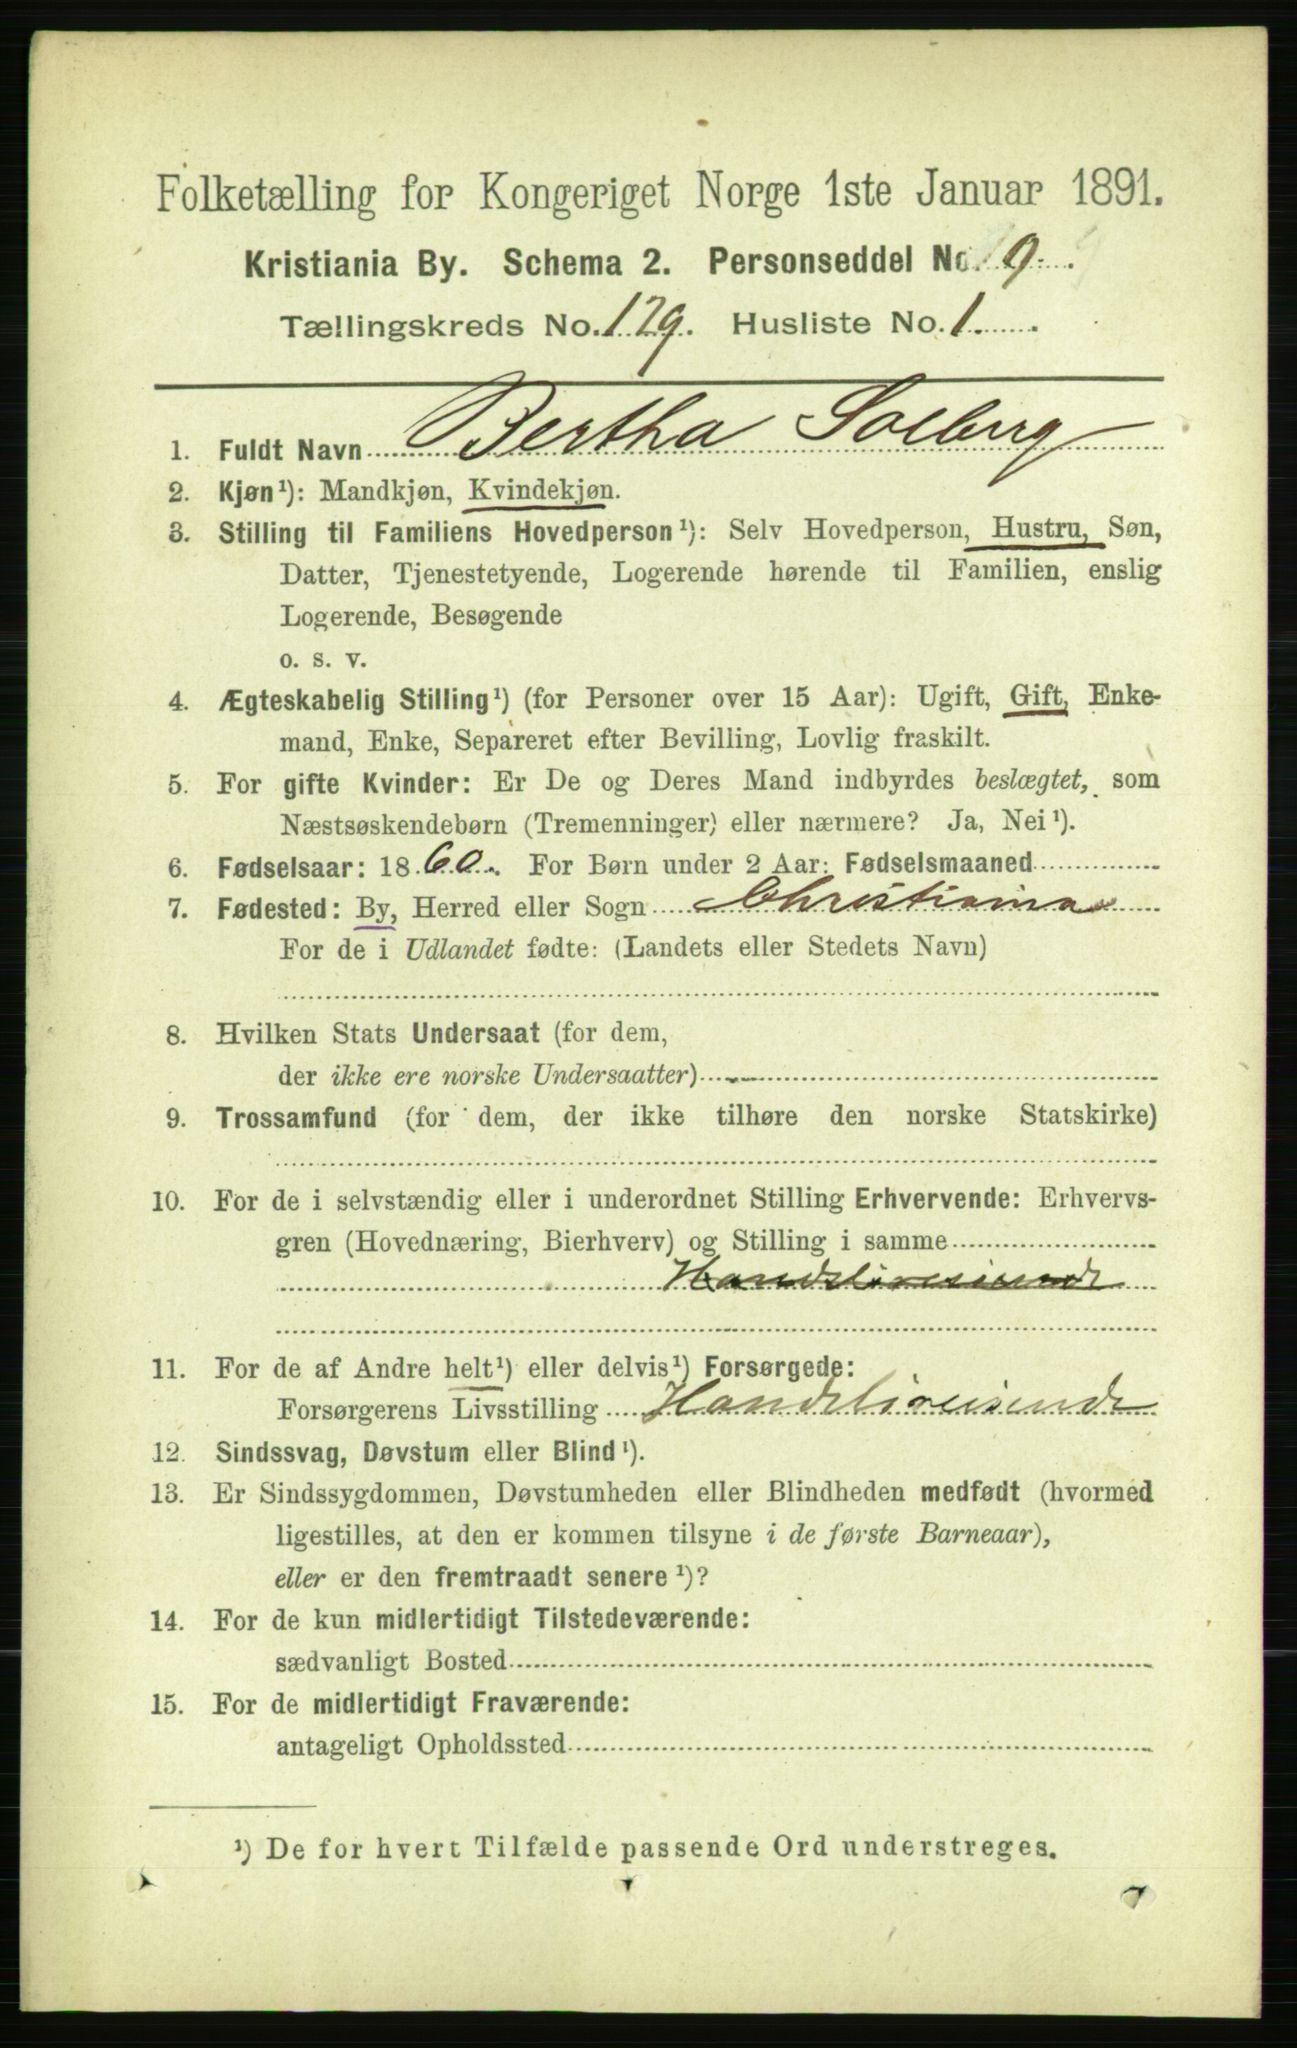 Folketælling for Kongeriget Norge 1ste Januar 1891.
Kristiania By. Schema 2. Personseddel No. 9.
Tællingskreds No. 129. Husliste No. 1.
1. Fuldt Navn Bertha Solberg
2. Kjøn¹): Mandkjøn, Kvindekjøn.
3. Stilling til Familiens Hovedperson¹): Selv Hovedperson, Hustru, Søn,
Datter, Tjenestetyende, Logerende hørende til Familien, enslig
Logerende, Besøgende
o. s. v.
4. Ægteskabelig Stilling¹) (for Personer over 15 Aar): Ugift, Gift, Enke-
mand, Enke, Separeret efter Bevilling, Lovlig fraskilt.
5. For gifte Kvinder: Er De og Deres Mand indbyrdes beslægtet, som
Næstsøskendebørn (Tremenninger) eller nærmere? Ja, Nei¹).
6. Fødselsaar: 1860. For Børn under 2 Aar: Fødselsmaaned
7. Fødested: By, Herred eller Sogn Christiania
For de i Udlandet fødte: (Landets eller Stedets Navn)
8. Hvilken Stats Undersaat (for dem,
der ikke ere norske Undersaatter)
9. Trossamfund (for dem, der ikke tilhøre den norske Statskirke)
10. For de i selvstændig eller i underordnet Stilling Erhvervende: Erhvervs-
gren (Hovednæring, Bierhverv) og Stilling i samme
Handelsreisende
11. For de af Andre helt¹) eller delvis¹) Forsørgede:
Forsørgerens Livsstilling Handelsreisende
12. Sindssvag, Døvstum eller Blind¹).
13. Er Sindssygdommen, Døvstumheden eller Blindheden medfødt (hvormed
ligestilles, at den er kommen tilsyne i de første Barneaar),
eller er den fremtraadt senere¹)?
14. For de kun midlertidigt Tilstedeværende:
sædvanligt Bosted
15. For de midlertidigt Fraværende:
antageligt Opholdssted
¹) De for hvert Tilfælde passende Ord understreges.